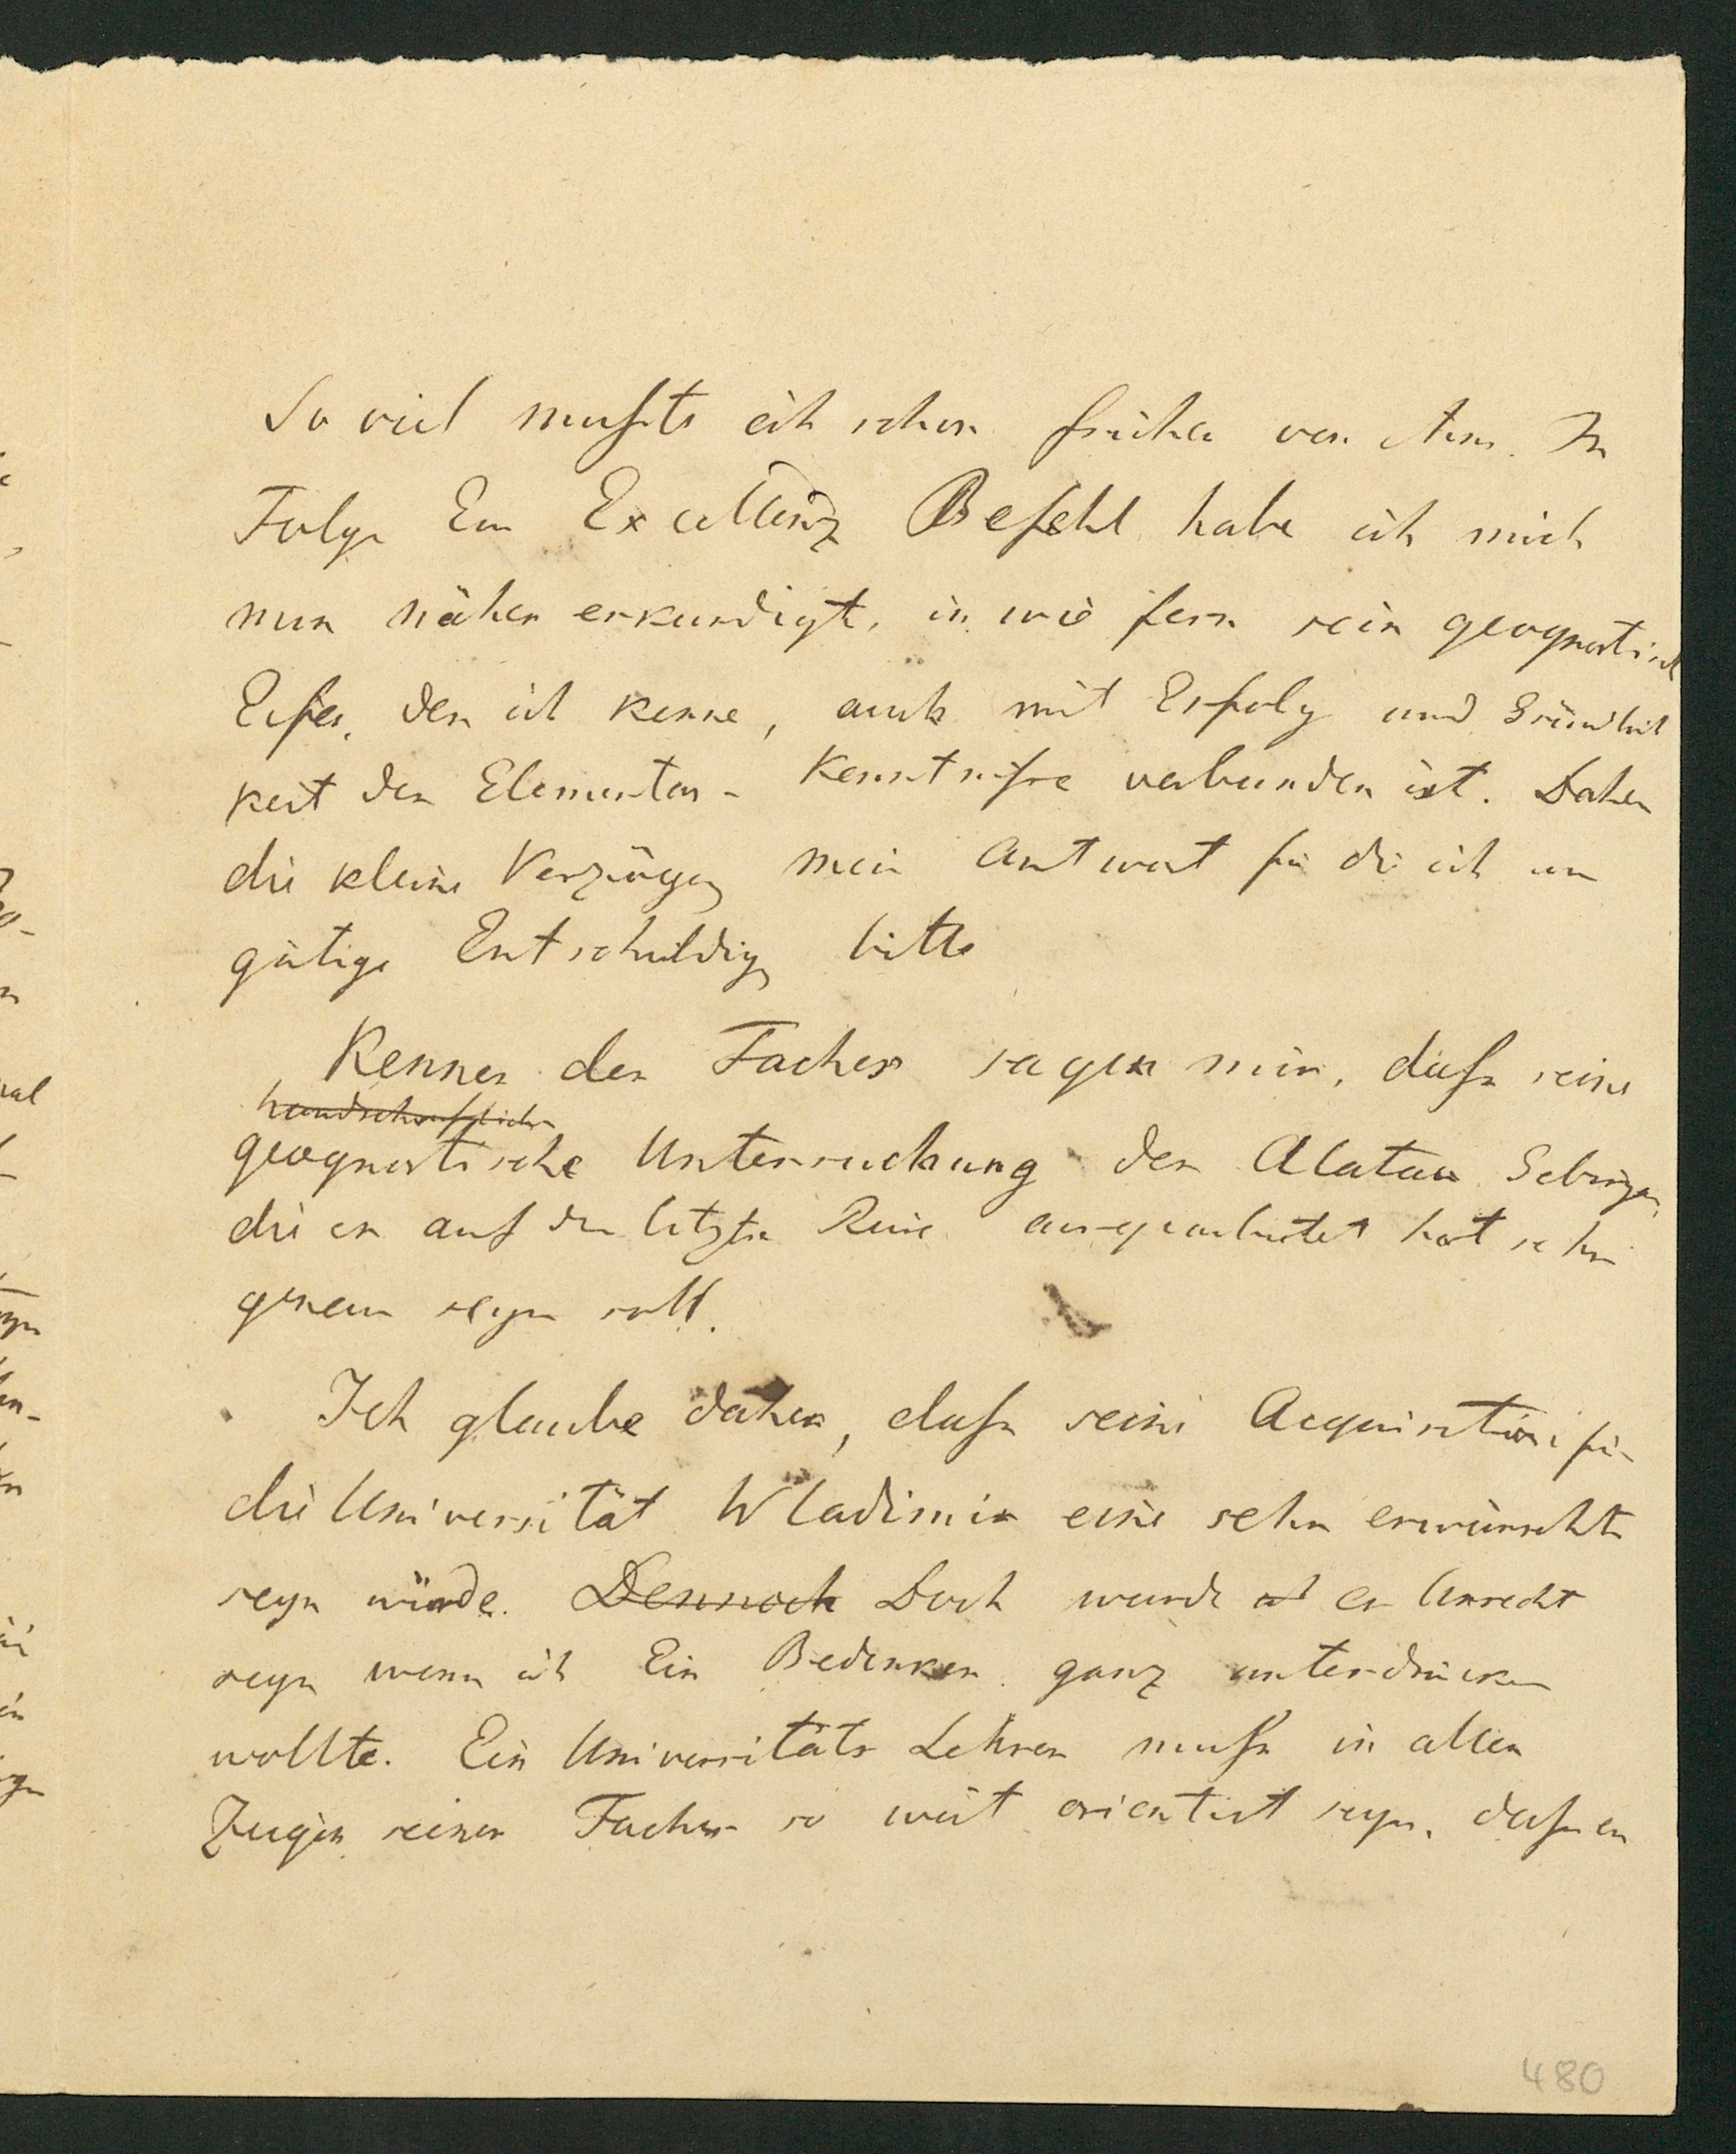 So viel wuſste ich schon früher von ihm. In
Folge Eur Excellenz Befehl habe ich mich
nun näher erkundigt, in wie fern sein geognostisch
Eifer, den ich kenne, auch mit Erfolg und Gründlich
keit der Elementar- Kenntniſse verbunden ist. Daher
die kleine Verzögrg mein Antwort für die ich um
gütige Entschuldigg bitte
Kenner des Faches sagen mir, daſs seine
handschriftliche
geognostische Untersuchung des Alatau Gebirges,
die er auf der letzten Reise ausgearbeitet hat sehr
genau seyn soll.
Ich glaube daher, daſs seine Acquisition für
die Universität Wladimir eine sehr erwünschte
seyn würde. Dennoch Doch wurde es Unrecht
seyn wenn ich Ein Bedenken ganz unterdrücken
wollte. Ein Universitäts Lehrer muſs in allen
Zweigen seines Faches so weit orientirt seyn, daſs er
480